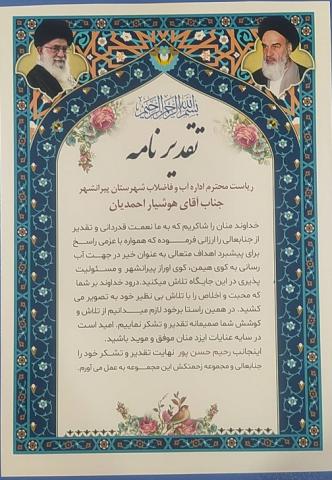 بسم الله الرحمن الرحیم
تقدیر نامه
ریاست محترم اداره آب و فاضلاب شهرستان پیرانشهر
جناب آقای هوشیار احمدیان
خداوند منان را شاکریم که به ما نعمت قدردانی و تقدیر
از جنابعالی را ارزانی فرموده که همواره با عزمی راسخ
برای پیشبرد اهداف متعالی به عنوان خیر در جهت آب
رسانی به کوی هیمن، کوی اوراز پیرانشهر و مسئولیت
پذیری در این جایگاه تلاش میکنید. درود خداوند بر شما
که محبت و اخلاص را با تلاش بی نظیر خود به تصویر می
کشید. در همین راستا برخود لازم میدانیم از تلاش و
کوشش شما صمیمانه تقدیر و تشکر نماییم. امید است
در سایه عنایات ایزد منان موفق و موید باشید.
اینجانب رحیم حسن پور نهایت تقدیر و تشکر خود را از
جنابعالی و مجموعه زحمتکش این مجموعه به عمل می آورم.